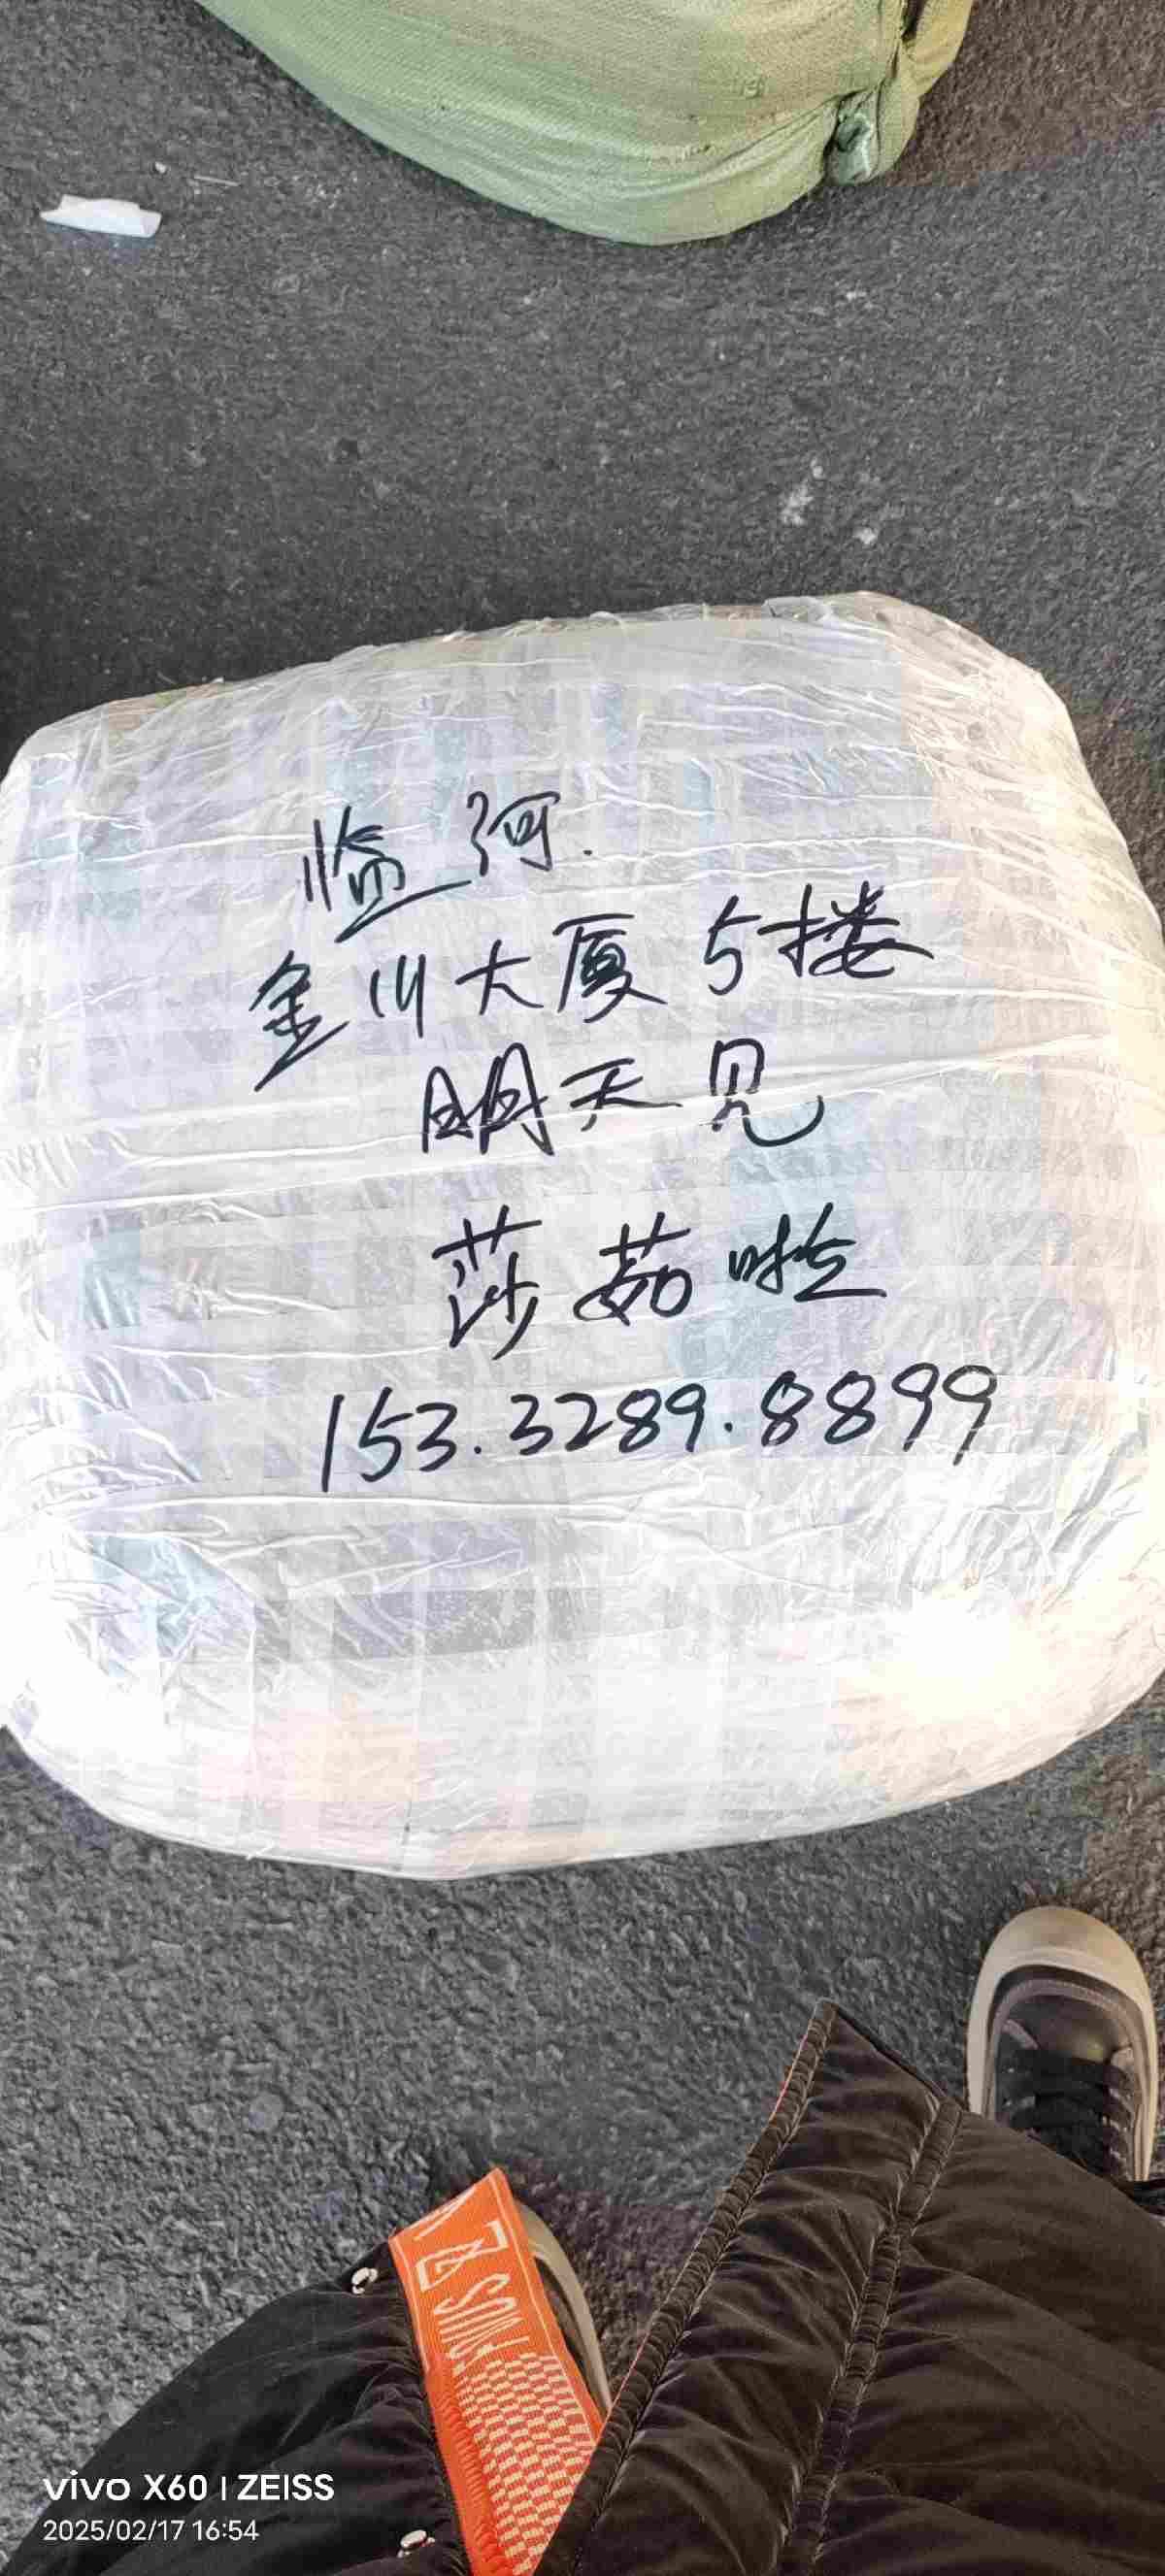 临河.
金川大厦5搂
明天见
莎茹啦
153.3289.8899
vivo X60 | ZEISS
2025/02/17 16:54